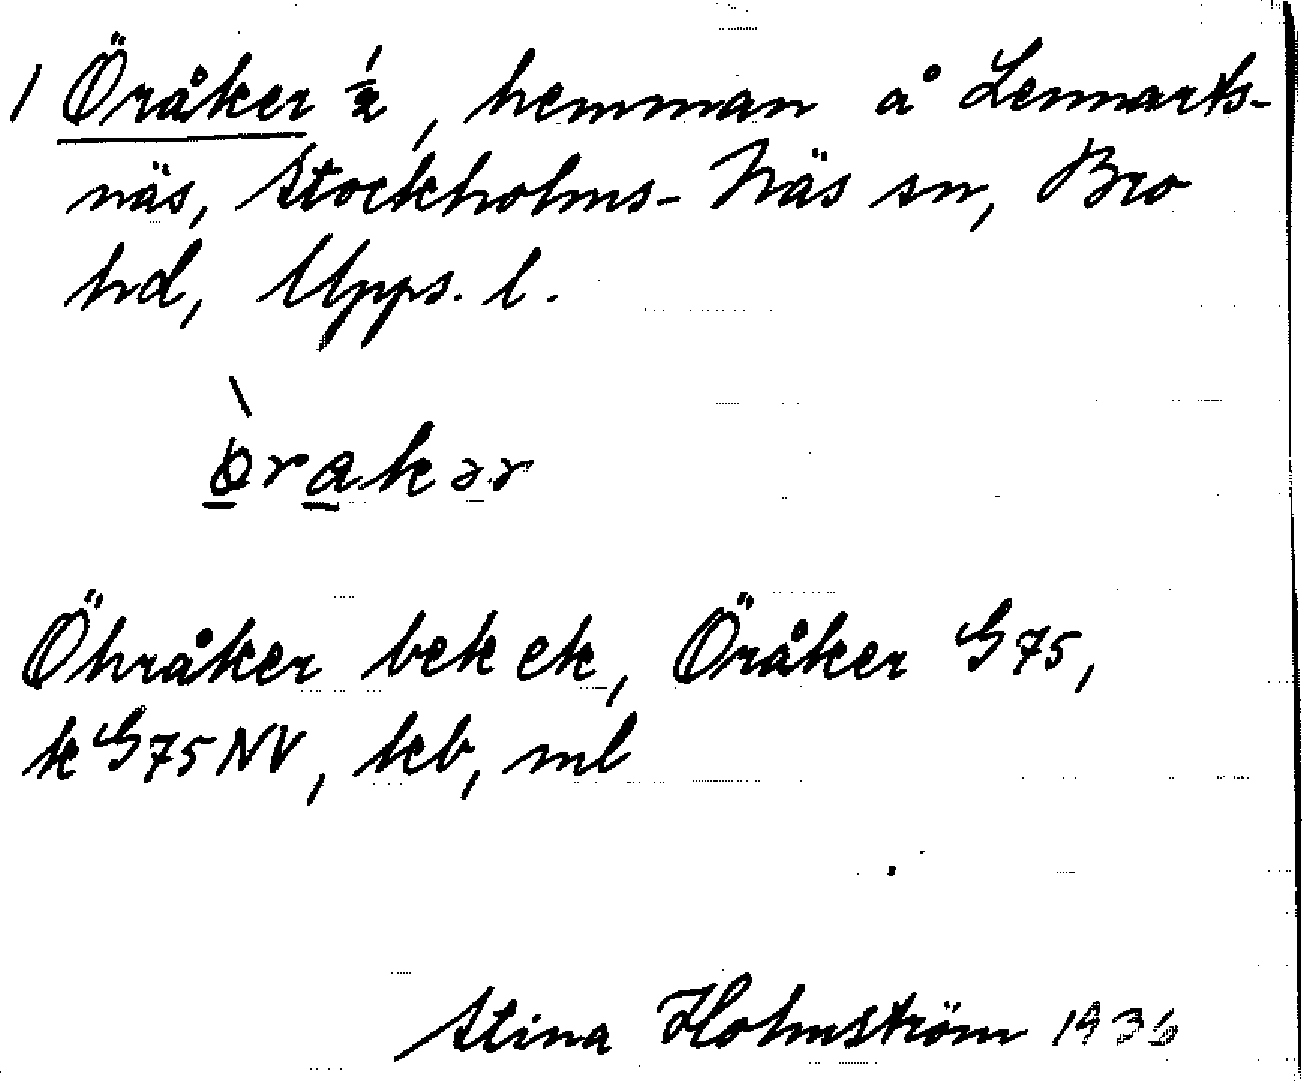 1 Öråker ½, hemman å Lennarts-
näs, Stockholms-Näs sn, Bro
hd, Upps. l.
òrakər
Öhråker bek ek, Öråker G75,
k G75 NV, kb, ml
Stina Holmström 1936